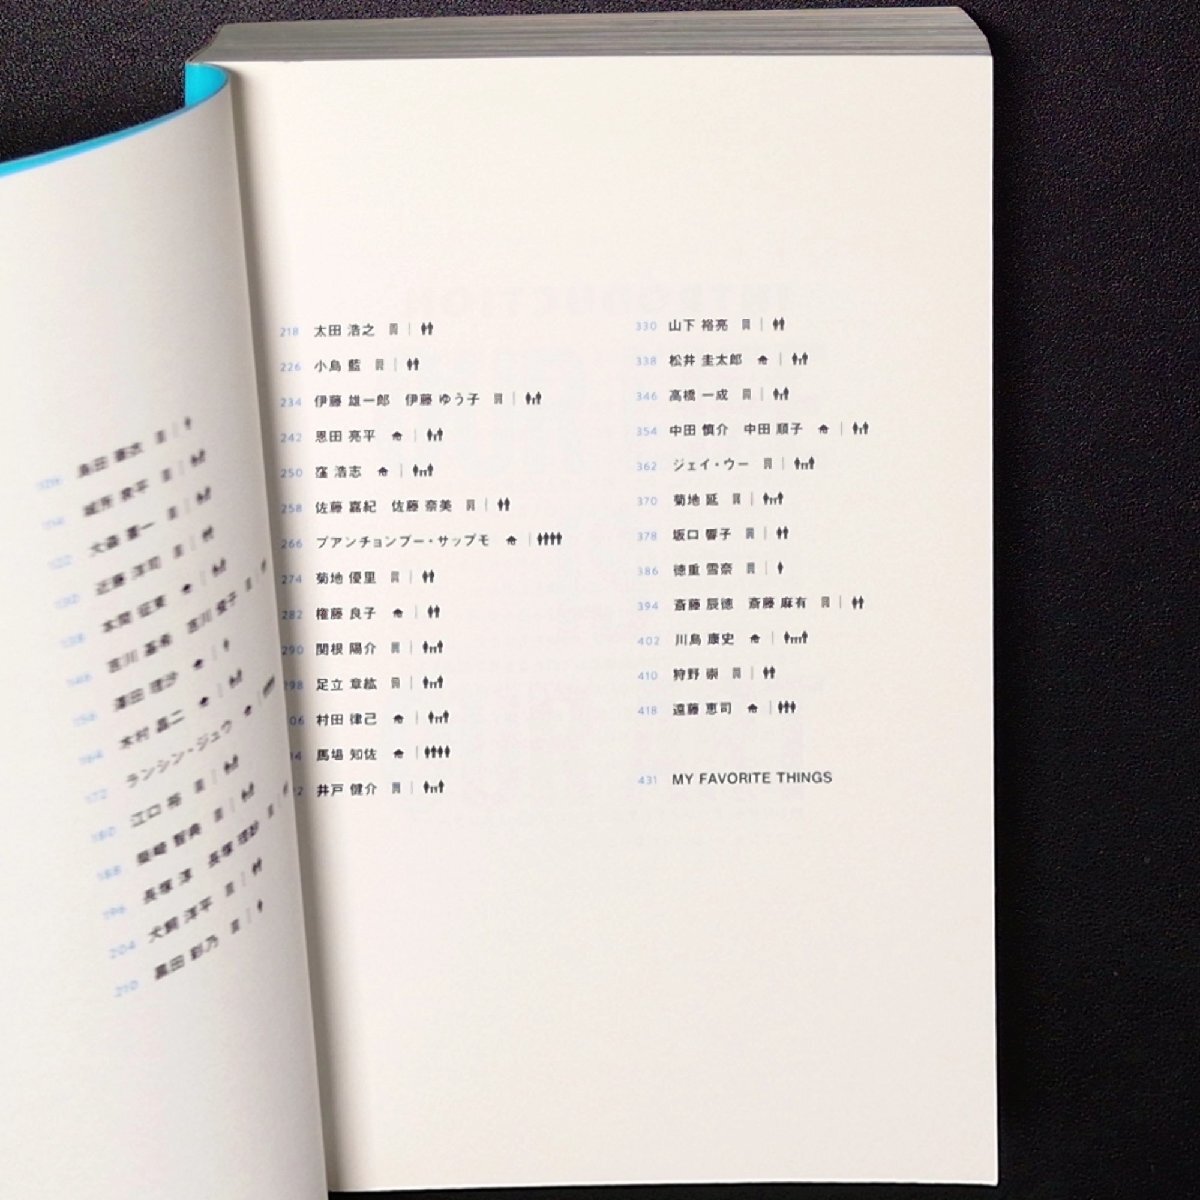 大森 憲一
近藤 洋司
本間 征東
吉川 基希 吉川 俊子
澤田 理沙
木村 昌二
172 ランシン・ジュウ
180 江口 裕
188 柴崎 智典
196 長塚 淳 長塚 理紗
204 犬飼 洋平
210 黒田 彩乃
218 太田 浩之
226 小島 藍
234 伊藤 雄一郎 伊藤 ゆう子
242 恩田 亮平
250 窪 浩志
258 佐藤 嘉紀 佐藤 奈美
266 プアンチョンプー・サップモ
274 菊地 優里
282 権藤 良子
290 関根 陽介
298 足立 章紘
06 村田 律己
馬場 知佐
井戸 健介
330 山下 裕亮
338 松井 圭太郎
346 高橋 一成
354 中田 慎介 中田 順子
362 ジェイ・ウー
370 菊地 延
378 坂口 響子
386 徳重 雪奈
394 斎藤 辰徳 斎藤 麻有
402 川島 康史
410 狩野 崇
418 遠藤 恵司
431 MY FAVORITE THINGS